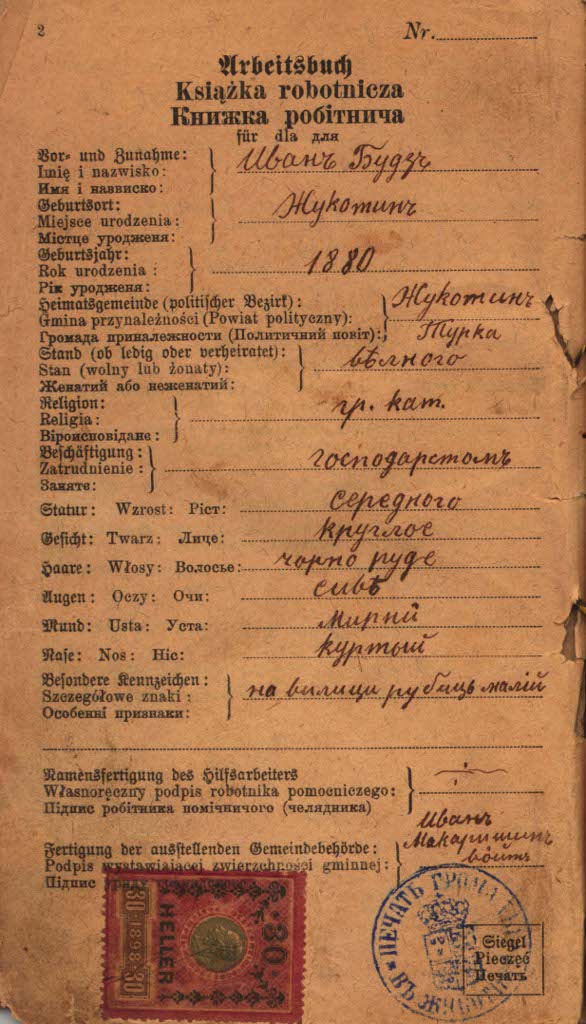 2
Nr.
Arbeitsbuch
Książka robotnicza
Книжка робітнича
für dla для
Vor= und Zunahme:
Imię i nazwisko:
Имя і наввиско:
Иванъ Будзъ
Geburtsort:
Miejsce urodzenia:
Містце уродженя:
Жукотинъ
Geburtsjahr:
Rok urodzenia :
Рік уродженя:
1880
Heimatsgemeinde (politischer Bezirk) :
Gmina przynależności (Powiat polityczny):
Громада приналежности (Политичний повіт):
Жукотинъ
Турка
Stand (ob ledig oder verheiratet) :
Stan (wolny lub żonaty):
Женатий або неженатий:
вѣлного
Religion:
Religia:
Віроисповідане :
гр. кат.
Beschäftigung :
Zatrudnienie :
Заняте:
господарстомъ
Statur: Wzrost: Ріст:
середного
Gesicht: Twarz: Лице:
круглое
Haare: Włosy: Волосье:
чорно руде
Augen: Oczy: Очи:
сивѣ
Mund: Usta: Уста:
мирній
Nase: Nos: Ніс:
куртый
Besondere Kennzeichen :
Szczegółowe znaki :
Особенні признаки:
на вилици рубець малій
Namensfertigung des Hilfsarbeiters
Własnoręczny podpis robotnika pomocniczego:
Підпис робітника помічничого (челядника)
Fertigung der ausstellenden Gemeindebehörde :
Podpis wystawiającej zwierzchności gminnej:
Підпис
Иванъ
войтъ
30
HELLER
30·1898·30
ПЕЧАТЬ ГРОМА
Siegel
Pieczęć
Печать